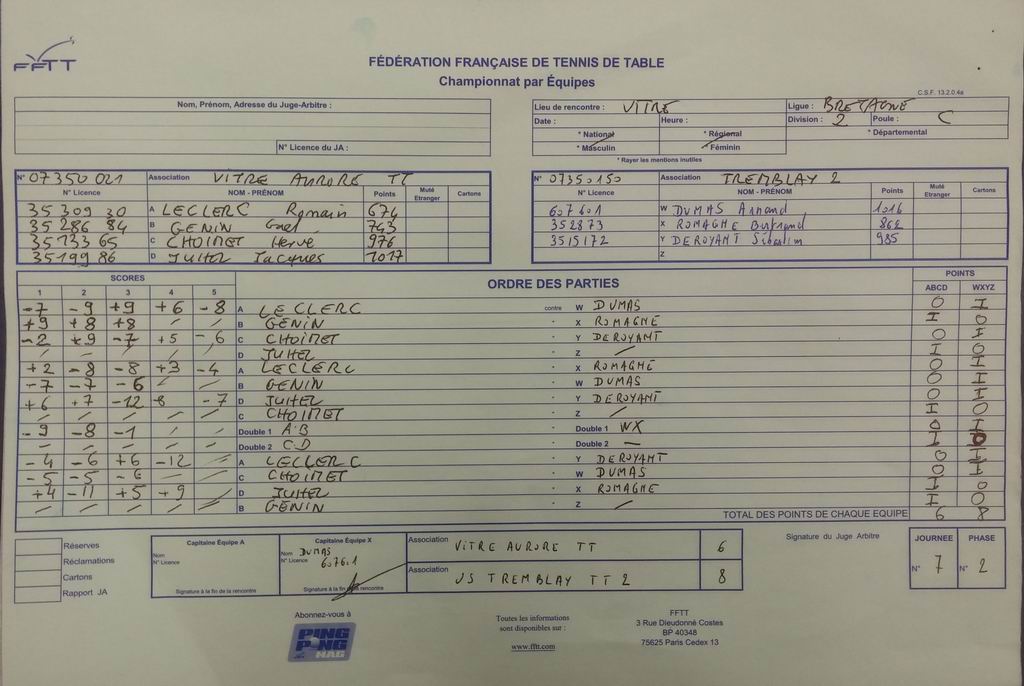 FFTT
FÉDÉRATION FRANÇAISE DE TENNIS DE TABLE
Championnat par Équipes
C.S.F. 13.2.0.4a
Nom, Prénom, Adresse du Juge-Arbitre :
N° Licence du JA :
Lieu de rencontre : VITRE Ligue : BRETAGNE
Date : Heure : Division : 2 Poule : C
* National * Régional * Départemental
* Masculin * Féminin
* Rayer les mentions inutiles
N° 07350021 Association VITRE AURORE TT
N° Licence NOM - PRÉNOM Points Muté Etranger Cartons
35 309 30 A LECLERC Romain 674
35 286 84 B GENIN 743
35 133 65 C CHOINET Herve 976
35199 86 D JUHEL Jacques 1017
N° 07350150 Association TREMBLAY 2
N° Licence NOM - PRÉNOM Points Muté Etranger Cartons
607601 W DUMAS Arnaud 1016
352873 X ROMAGNE Bertrand 862
3515172 Y DEROYANT Sébastien 985
Z
SCORES ORDRE DES PARTIES POINTS
1 2 3 4 5 ABCD WXYZ
-7 -9 +9 +6 -8 A LECLERC contre W DUMAS 0 I
+9 +8 +8 / / B GENIN - X ROMAGNE I 0
-2 +9 -7 +5 -6 C CHOINET - Y DEROYANT 0 I
/ / / / / D JUHEL - Z / I 0
+2 -8 -8 +3 -4 A LECLERC - X ROMAGNE 0 I
-7 -7 -6 / / B GENIN - W DUMAS 0 I
+6 +7 -12 -8 -7 D JUHEL - Y DEROYANT 0 I
/ / / / / C CHOINET - Z / I 0
-9 -8 -1 / / Double 1 A.B Double 1 WX 0 I
/ / / / / Double 2 C.D Double 2 — I 0
-4 -6 +6 -12 / A LECLERC - Y DEROYANT 0 I
-5 -5 -6 / / C CHOINET - W DUMAS 0 I
+4 -11 +5 +9 / D JUHEL - X ROMAGNE I 0
/ / / / / B GENIN - Z / I 0
TOTAL DES POINTS DE CHAQUE EQUIPE 6 8
Réserves
Réclamations
Cartons
Rapport JA
Capitaine Équipe A
Nom
N° Licence
Signature à la fin de la rencontre
Capitaine Équipe X
Nom DUMAS
N° Licence 607601
Signature à la fin de la rencontre
Association VITRE AURORE TT 6
Association JS TREMBLAY TT 2 8
Signature du Juge Arbitre
JOURNEE PHASE
N° 7 N° 2
Abonnez-vous à
PING PONG MAG
Toutes les informations
sont disponibles sur :
www.fftt.com
FFTT
3 Rue Dieudonné Costes
BP 40348
75625 Paris Cedex 13